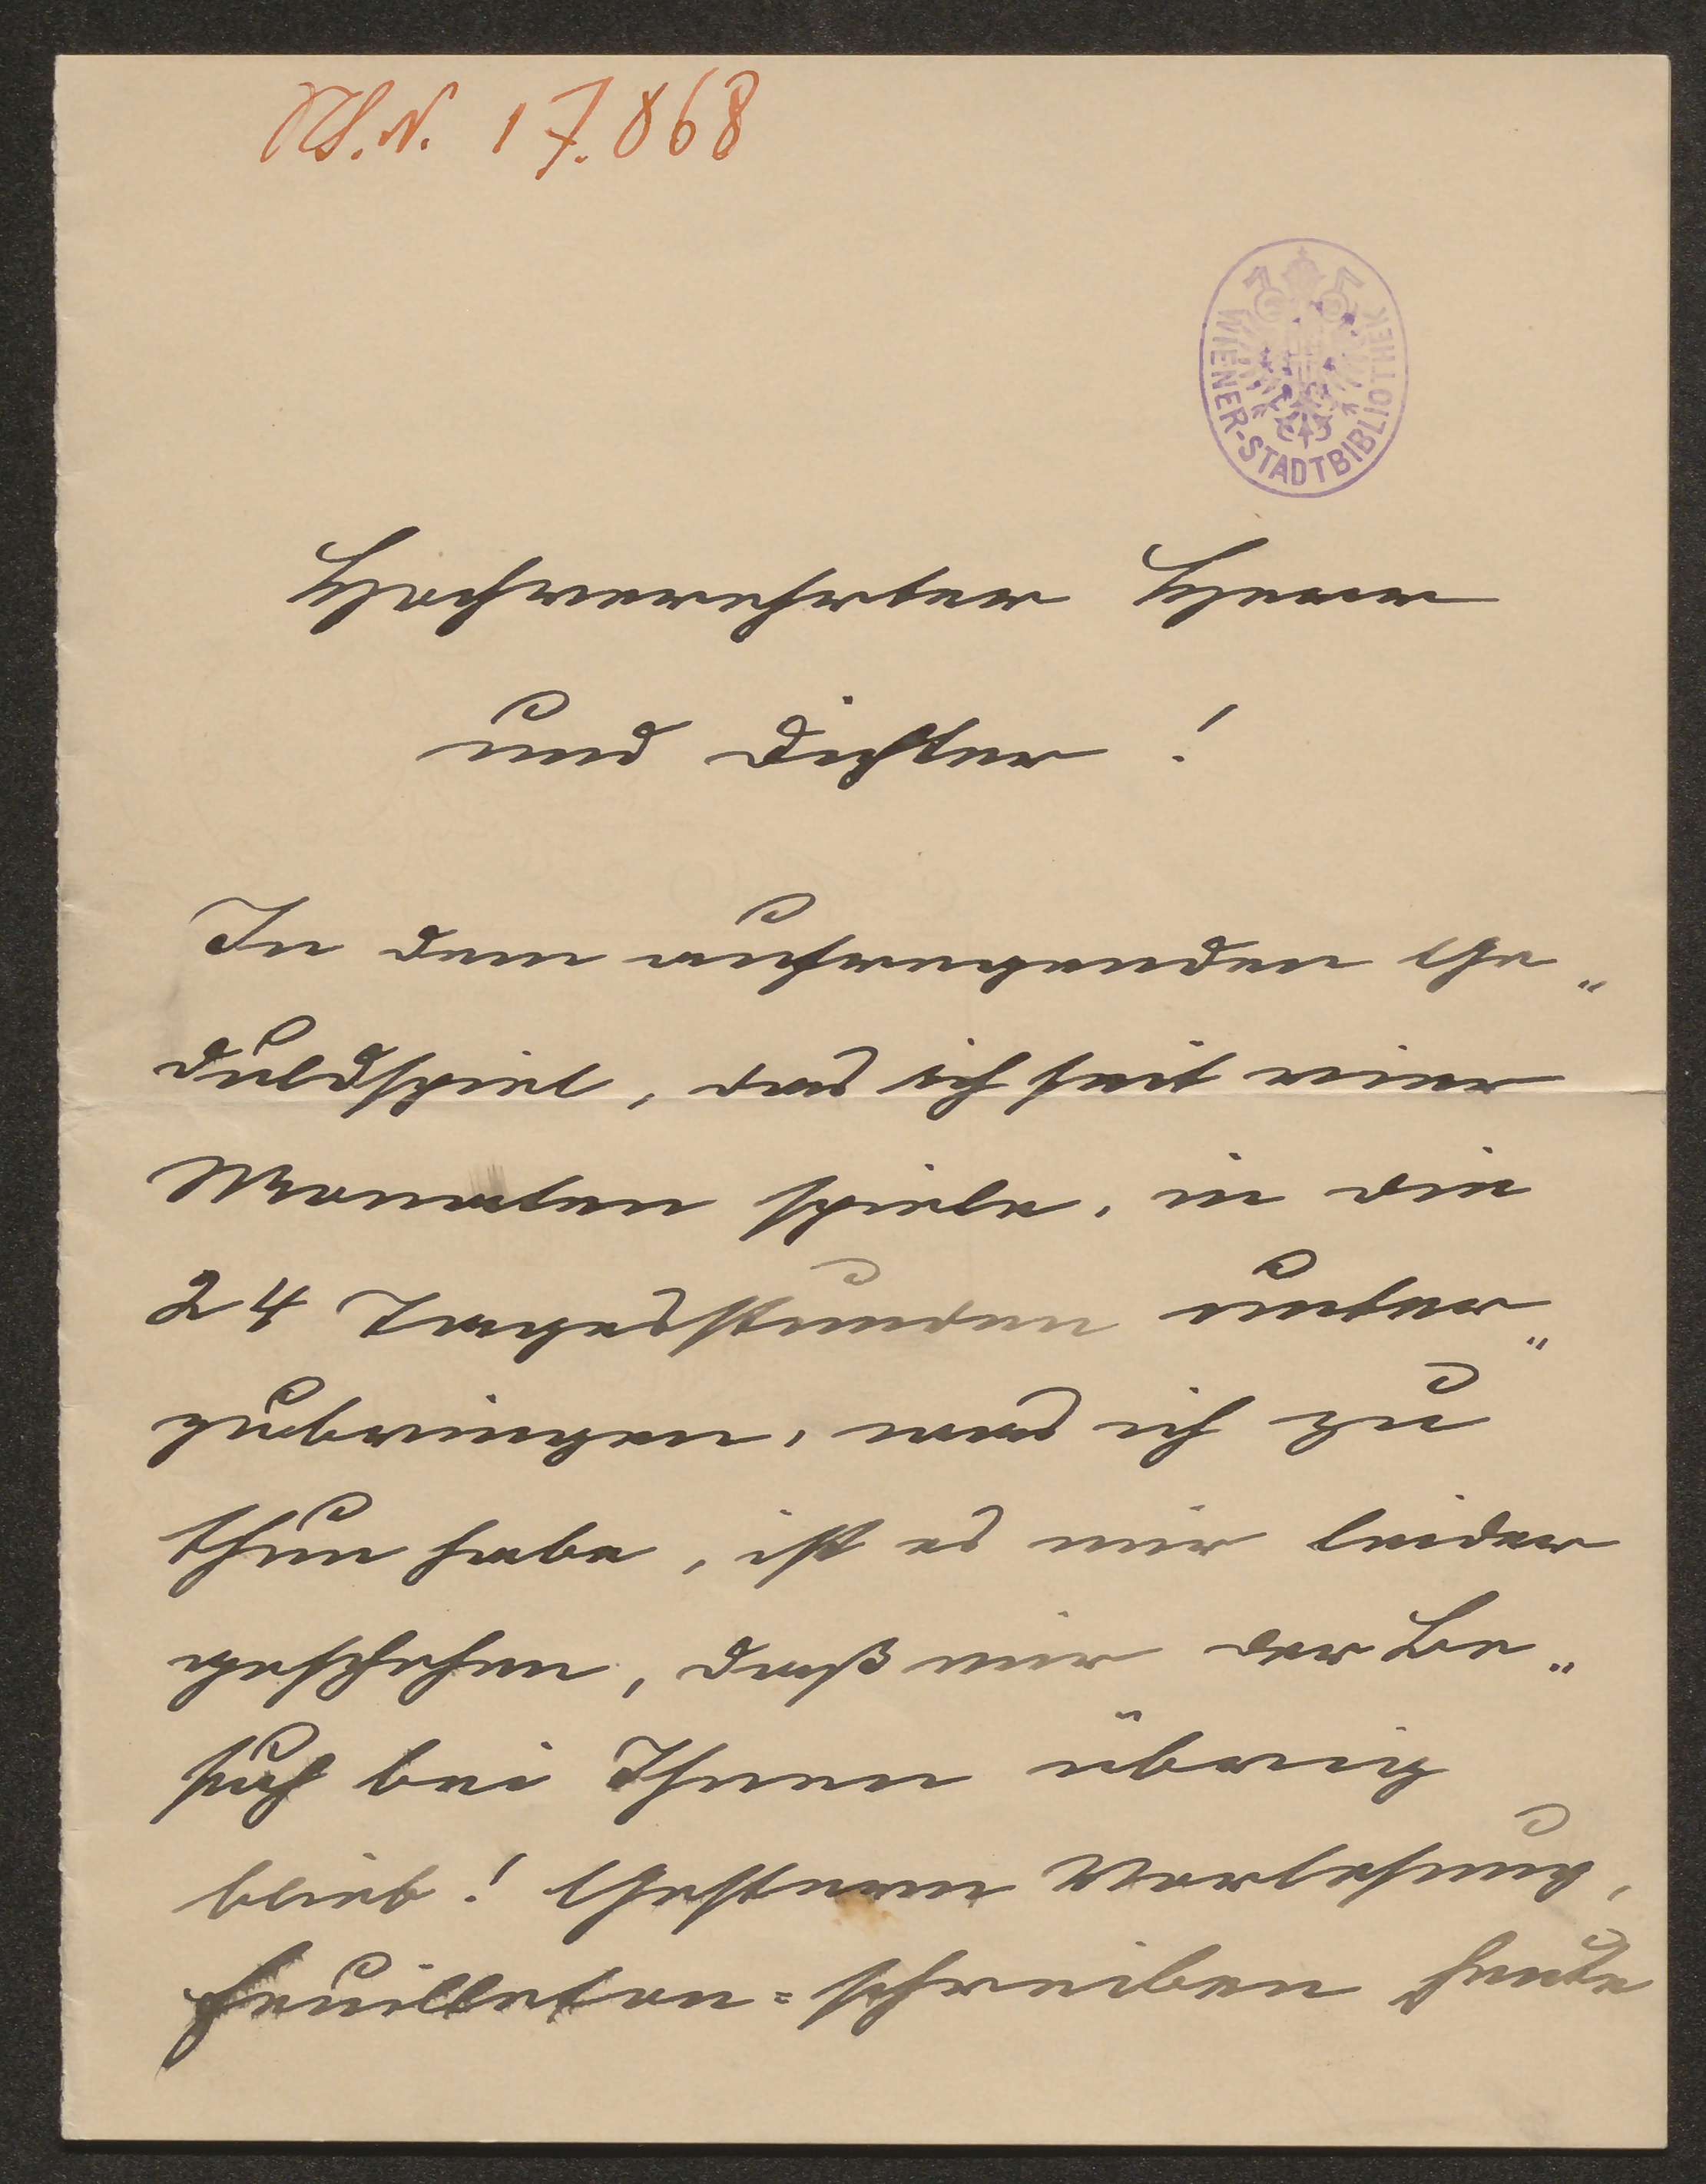 N. 17.868
WIENER-STADTBIBLIOTHEK
Hochverehrter Herr
und Dichter!
In dem aufregenden Ge„
duldspiel, das ich seit vier
Monaten spiele, in die
24 Tagesstunden unter„
zubringen, was ich zu
thun habe, ist es mir leider
geschehen, daß mir der Be„
such bei Ihnen übrig
blieb! Gestern Vorlesung,
Feuilleton=schreiben heute